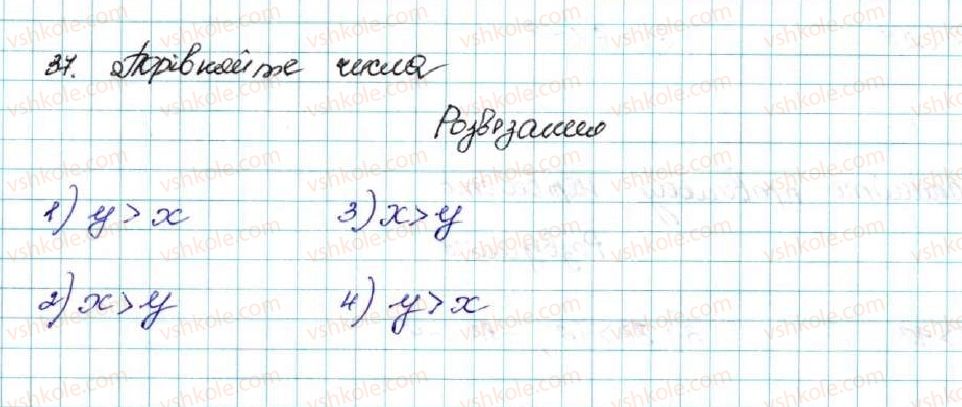 37. Порівняйте числа
Розвязання
1) y > x
3) x > y
2) x > y
4) y > x
vshkole.com